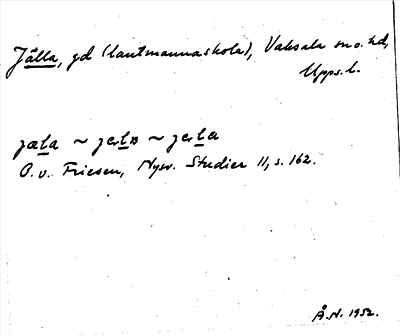 Jälla, gd (lantmannaskola), Vaksala sn o. hd,
Upps. l.
O. v. Friesen, Nysv. Studier 11, s. 162.
Å. N. 1952.